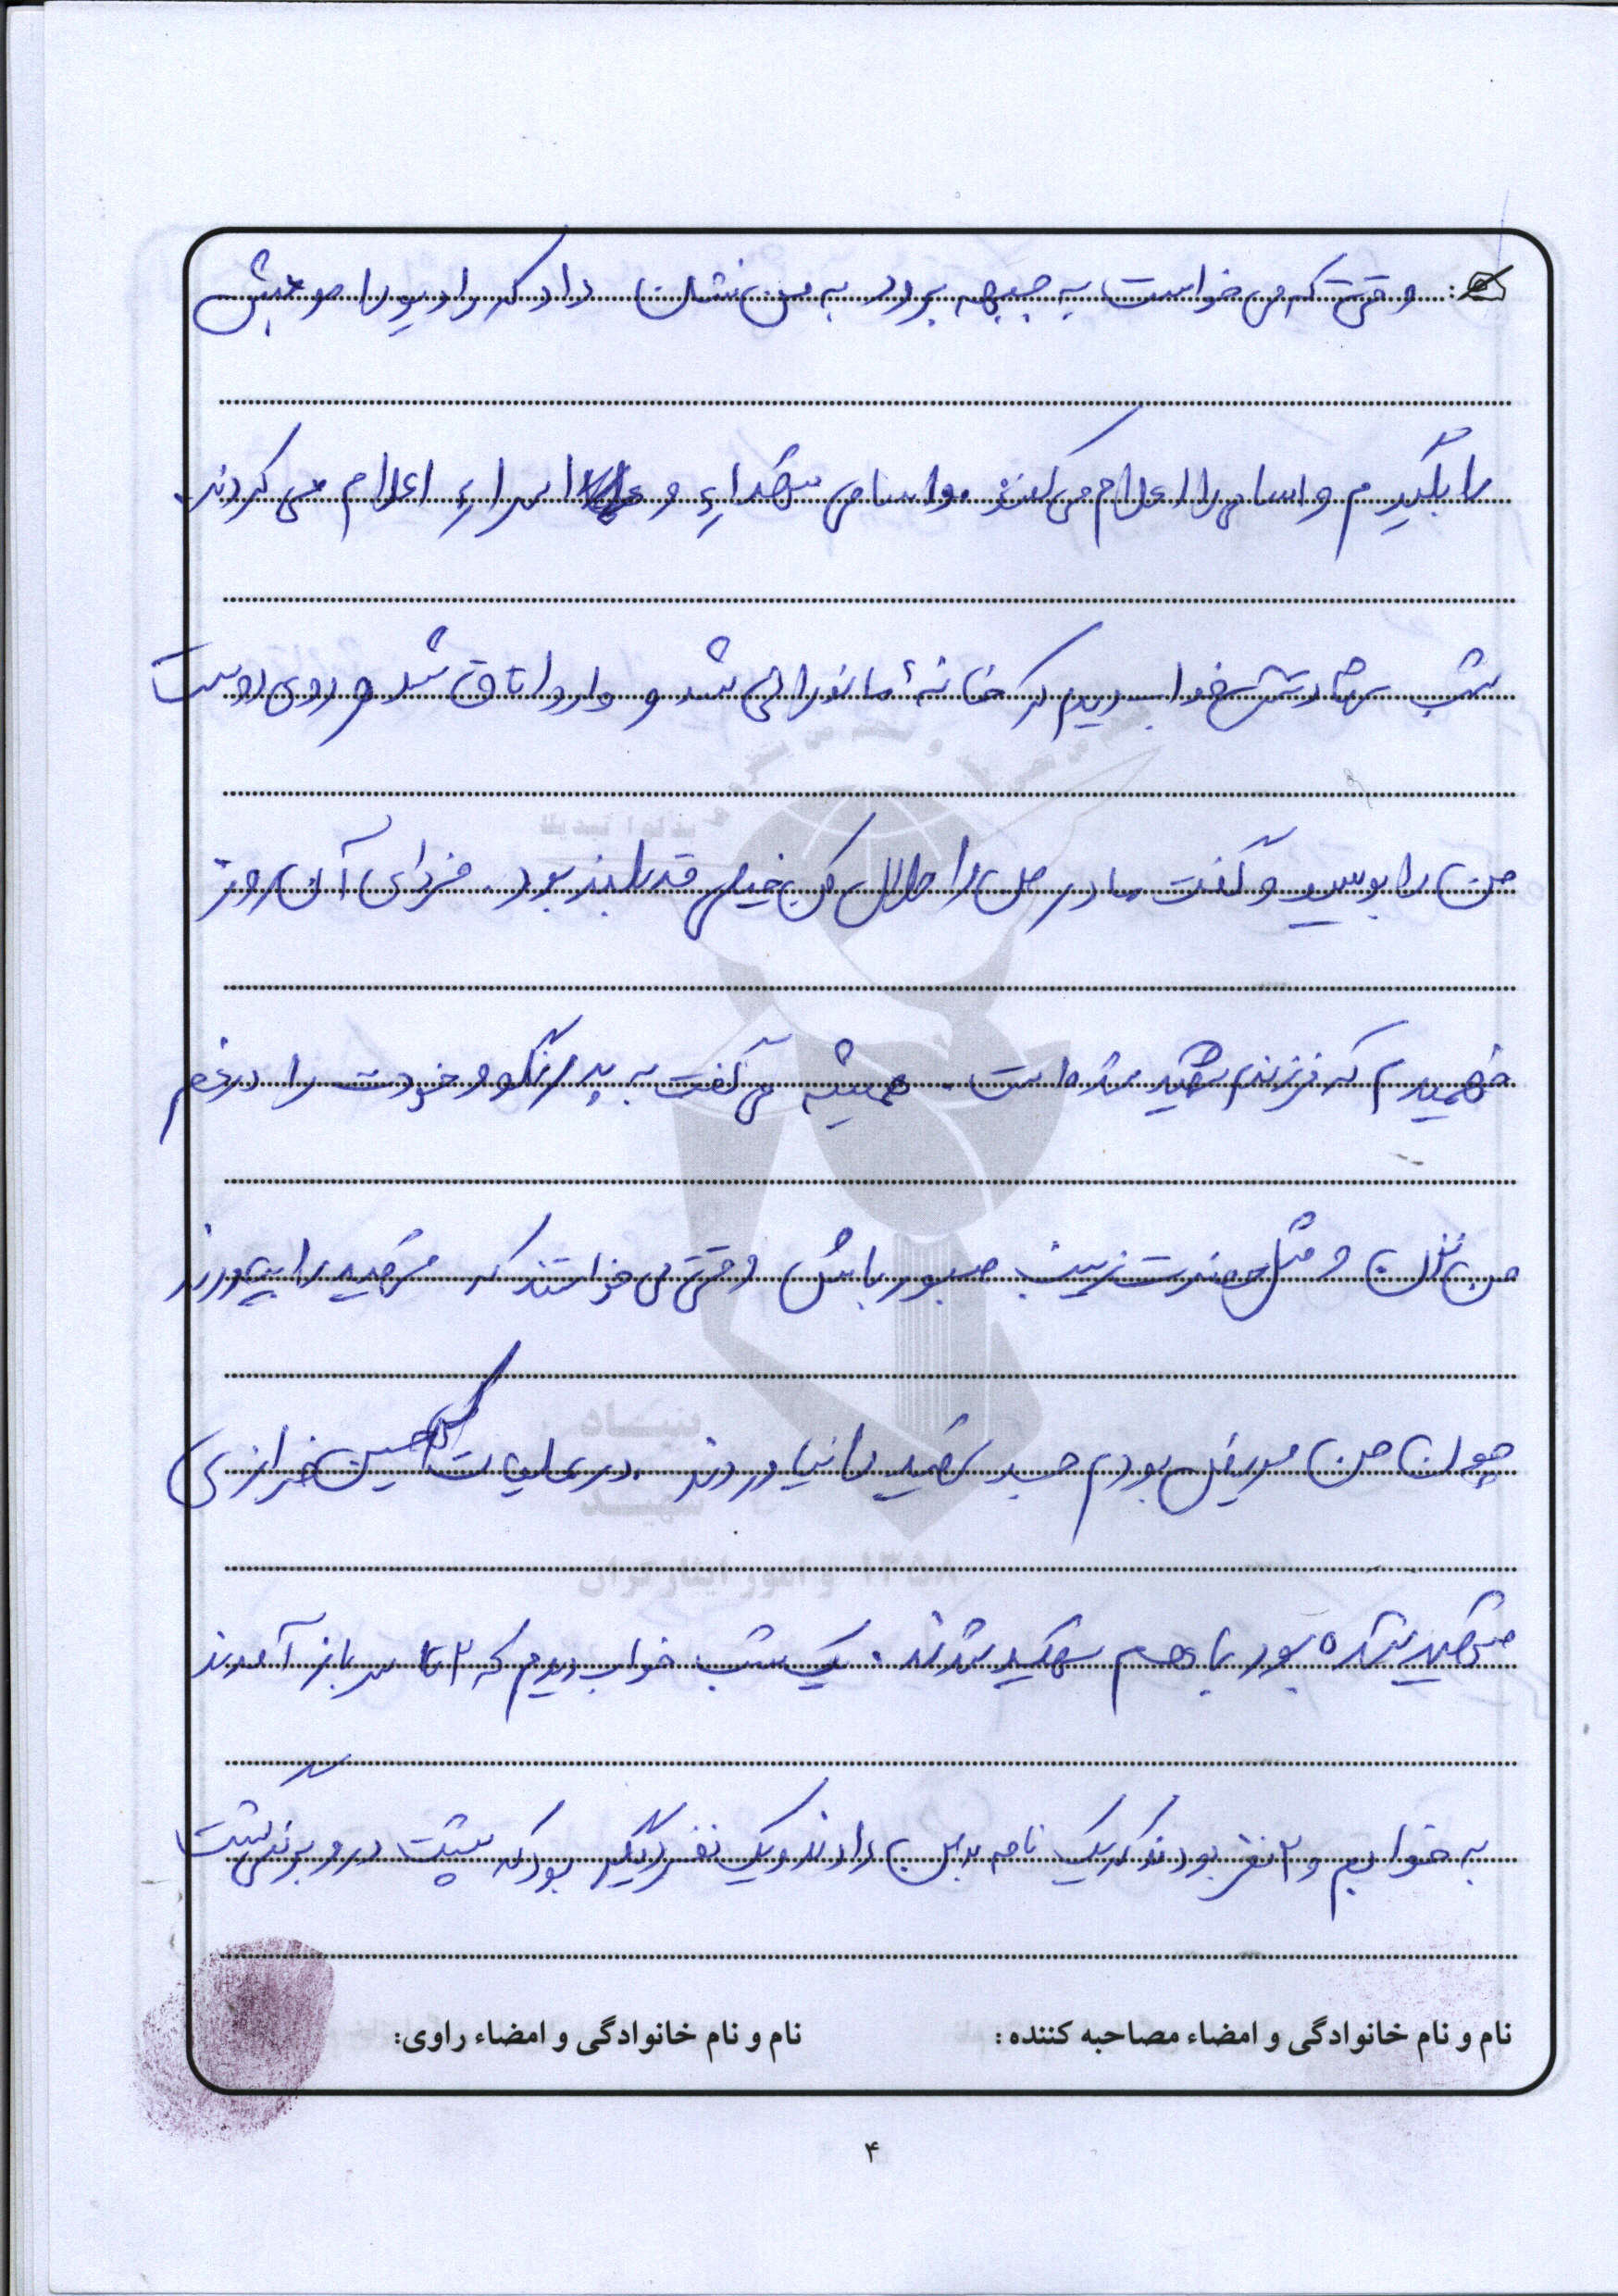 وقتی که می خواست به جبهه برود به من نشان داد که رادیو را موجش
را بگیرم و اسامی را اعلام می کنند و اسامی شهداء و اسراء اعلام می کردند.
شب شهادتش خواب دیدم که خانهٔ ما نورانی شد و وارد اتاق شد و روی دوست
من را بوسید و گفت مادر من را حلال کن خیلی قد بلند بود. فردای آن روز
فهمیدم که فرزندم شهید شده است. همیشه می گفت به پدر نگو و خودت را در غم
من نزن و مثل حضرت زینب صبور باش وقتی می خواستند که شهید را بیاورند
چون من مریض بودم جسد شهید را نیاوردند. در عملیات که حسین خرازی
شهید شده بود با هم شهید شدند. یک شب خواب دیدم که ۲ تا سرباز آمدند
به خوابم و ۲ نفر بودند که یک نامه به من دادند و یک نفر دیگر بود که پشت در و برنمی گشت
نام و نام خانوادگی و امضاء مصاحبه کننده: نام و نام خانوادگی و امضاء راوی:
۴